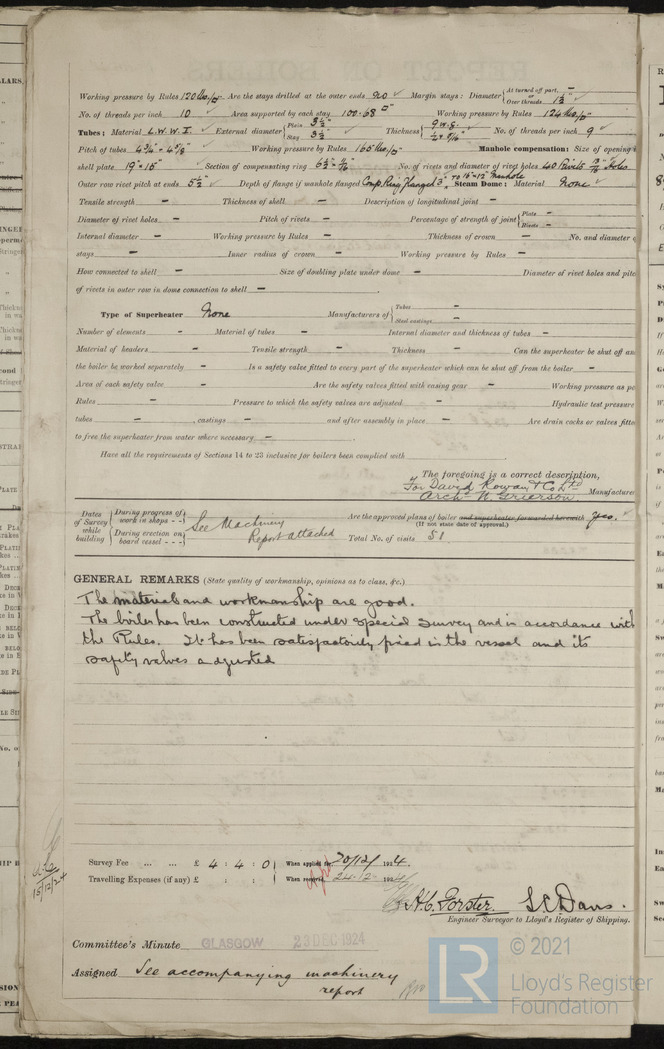 Working pressure by Rules 120 lbs/□" Are the stays drilled at the outer ends no Margin stays: Diameter { At turned off part, or Over threads 1½"
No. of threads per inch 10 Area supported by each stay 100.68 □" Working pressure by Rules 124 lbs/□"
Tubes: Material L.W.W.I. External diameter { Plain 3½" Stay 3½" Thickness { 9 W.G. No. of threads per inch 9
Pitch of tubes 4¾" × 4⅝" Working pressure by Rules 165 lbs/□" Manhole compensation: Size of opening
shell plate 19" × 15" Section of compensating ring No. of rivets and diameter of rivet holes 40 Rivets Holes
Outer row rivet pitch at ends 5½" Depth of flange if manhole flanged Comp. Ring flanged 3" to 16" × 12" Manhole Steam Dome: Material None
Tensile strength – Thickness of shell – Description of longitudinal joint –
Diameter of rivet holes – Pitch of rivets – Percentage of strength of joint { Plate – Rivets –
Internal diameter – Working pressure by Rules – Thickness of crown – No. and diameter
stays – Inner radius of crown – Working pressure by Rules –
How connected to shell – Size of doubling plate under dome – Diameter of rivet holes and pitc
of rivets in outer row in dome connection to shell –
Type of Superheater None Manufacturers of { Tubes – Steel castings –
Number of elements – Material of tubes – Internal diameter and thickness of tubes –
Material of headers – Tensile strength – Thickness – Can the superheater be shut off an
the boiler be worked separately – Is a safety valve fitted to every part of the superheater which can be shut off from the boiler –
Area of each safety valve – Are the safety valves fitted with easing gear – Working pressure as pe
Rules – Pressure to which the safety valves are adjusted – Hydraulic test pressure
tubes – , castings – and after assembly in place – Are drain cocks or valves fitte
to free the superheater from water where necessary –
Have all the requirements of Sections 14 to 23 inclusive for boilers been complied with
The foregoing is a correct description,
For David Rowan & Co Ltd
Arch. W. Grierson Manufacture
Dates of Survey while building { During progress of work in shops - - } { During erection on board vessel - - - } See Machinery Report attached
Are the approved plans of boiler and superheater forwarded herewith Yes.
(If not state date of approval.)
Total No. of visits 51
GENERAL REMARKS (State quality of workmanship, opinions as to class, &c.)
The materials and workmanship are good.
The boiler has been constructed under special survey and in accordance with
the Rules. It has been satisfactorily fixed in the vessel and its
safety valves adjusted
Survey Fee ... ... £ 4 : 4 : 0 When applied for, 20/12/ 1924.
Travelling Expenses (if any) £ : : When received, 24.12. 1924
15/12/24
A.C. Forster. S.C. Davis.
Engineer Surveyor to Lloyd's Register of Shipping.
Committee's Minute GLASGOW 23 DEC 1924
Assigned See accompanying machinery
report
© 2021
LR Lloyd's Register
Foundation